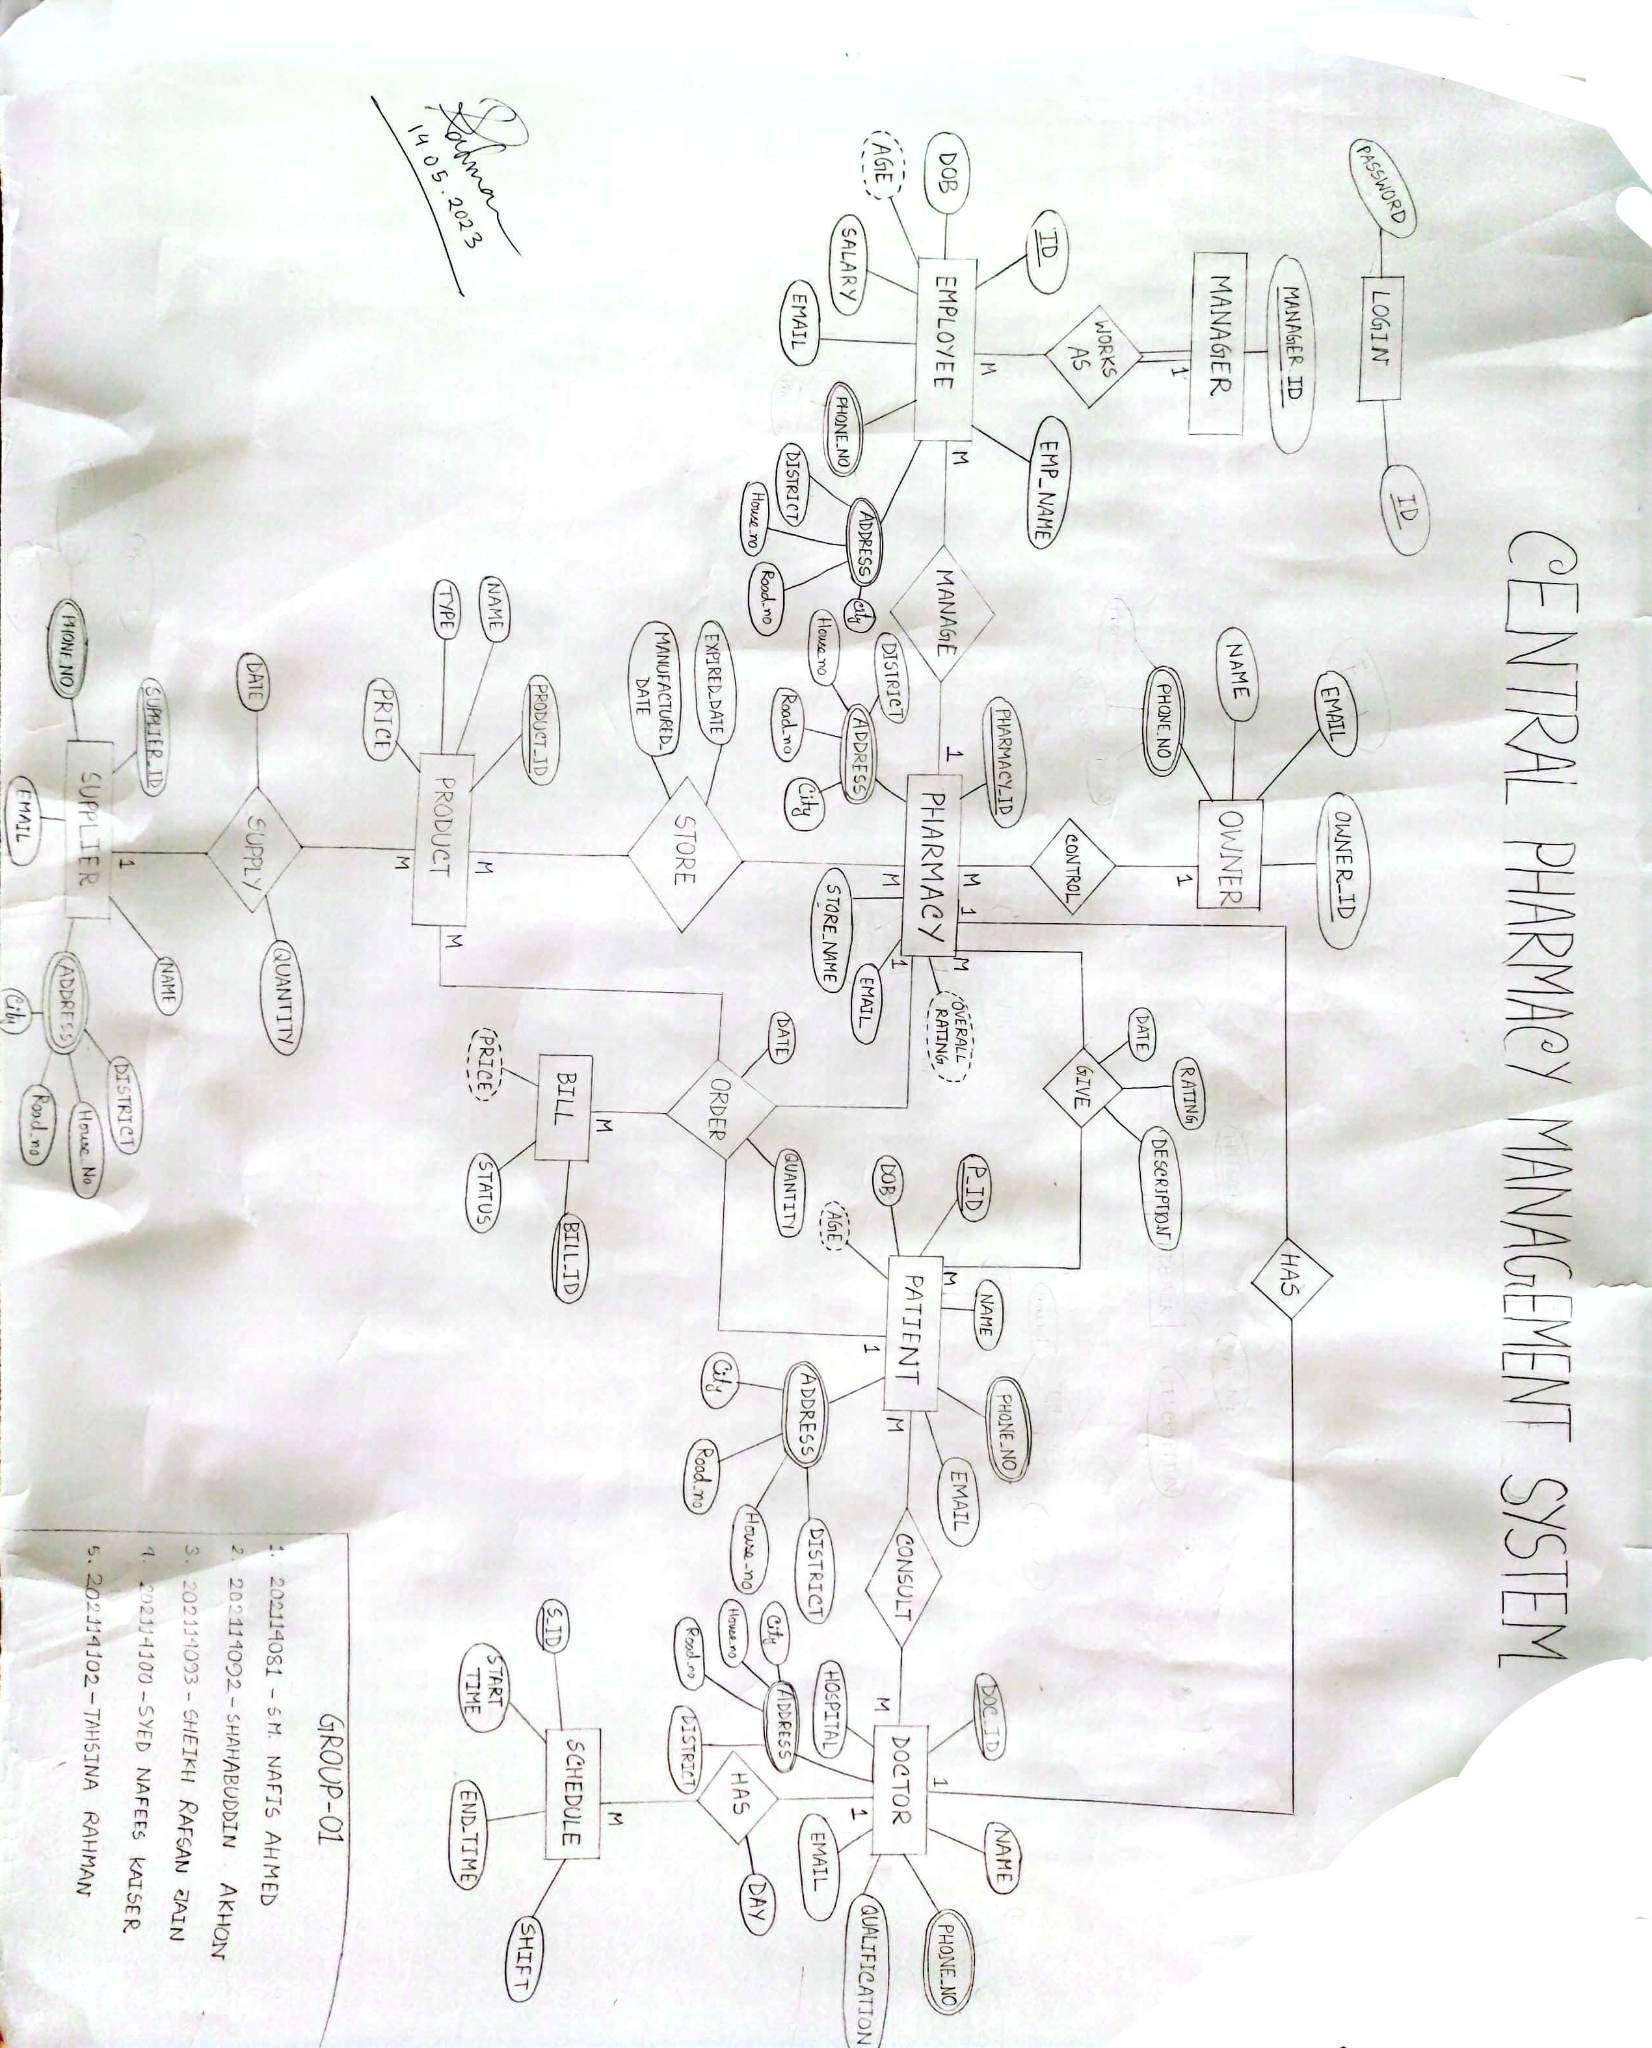 CENTRAL PHARMACY MANAGEMENT SYSTEM
PASSWORD
LOGIN
ID
MANAGER ID
MANAGER
1
WORKS
AS
M
ID
EMP_NAME
DOB
EMPLOYEE
M
AGE
SALARY
EMAIL
PHONE_NO
ADDRESS
City
DISTRICT
House_no
Road_no
MANAGE
1
EMAIL
OWNER_ID
NAME
OWNER
PHONE_NO
1
CONTROL
M
PHARMACY_ID
PHARMACY
1
M
OVERALL
RATING
DISTRICT
ADDRESS
House_no
Road_no
City
M
STORE_NAME
EMAIL
1
HAS
RATING
DATE
DESCRIPTION
GIVE
M
P_ID
NAME
PHONE_NO
EMAIL
PATIENT
DOB
AGE
1
M
ADDRESS
DISTRICT
House_no
City
Road_no
CONSULT
M
DOC_ID
NAME
1
PHONE_NO
DOCTOR
QUALIFICATION
HOSPITAL
1
EMAIL
ADDRESS
City
House_no
Road_no
DISTRICT
HAS
DAY
M
SCHEDULE
S_ID
START
TIME
END_TIME
SHIFT
DATE
QUANTITY
ORDER
M
BILL
BILL_ID
PRICE
STATUS
EXPIRED_DATE
MANUFACTURED_
DATE
STORE
M
PRODUCT_ID
NAME
TYPE
PRODUCT
M
PRICE
M
DATE
SUPPLY
QUANTITY
1
SUPPLIER_ID
NAME
SUPPLIER
PHONE_NO
EMAIL
ADDRESS
DISTRICT
House_No
Road_no
City
Rahman
14.05.2023
GROUP-01
1. 202114081 - S.M. NAFIS AHMED
2. 202114092 - SHAHABUDDIN AKHON
3. 202114093 - SHEIKH RAFSAN JAIN
4. 202114100 - SYED NAFEES KAISER
5. 202114102 - TAHSINA RAHMAN